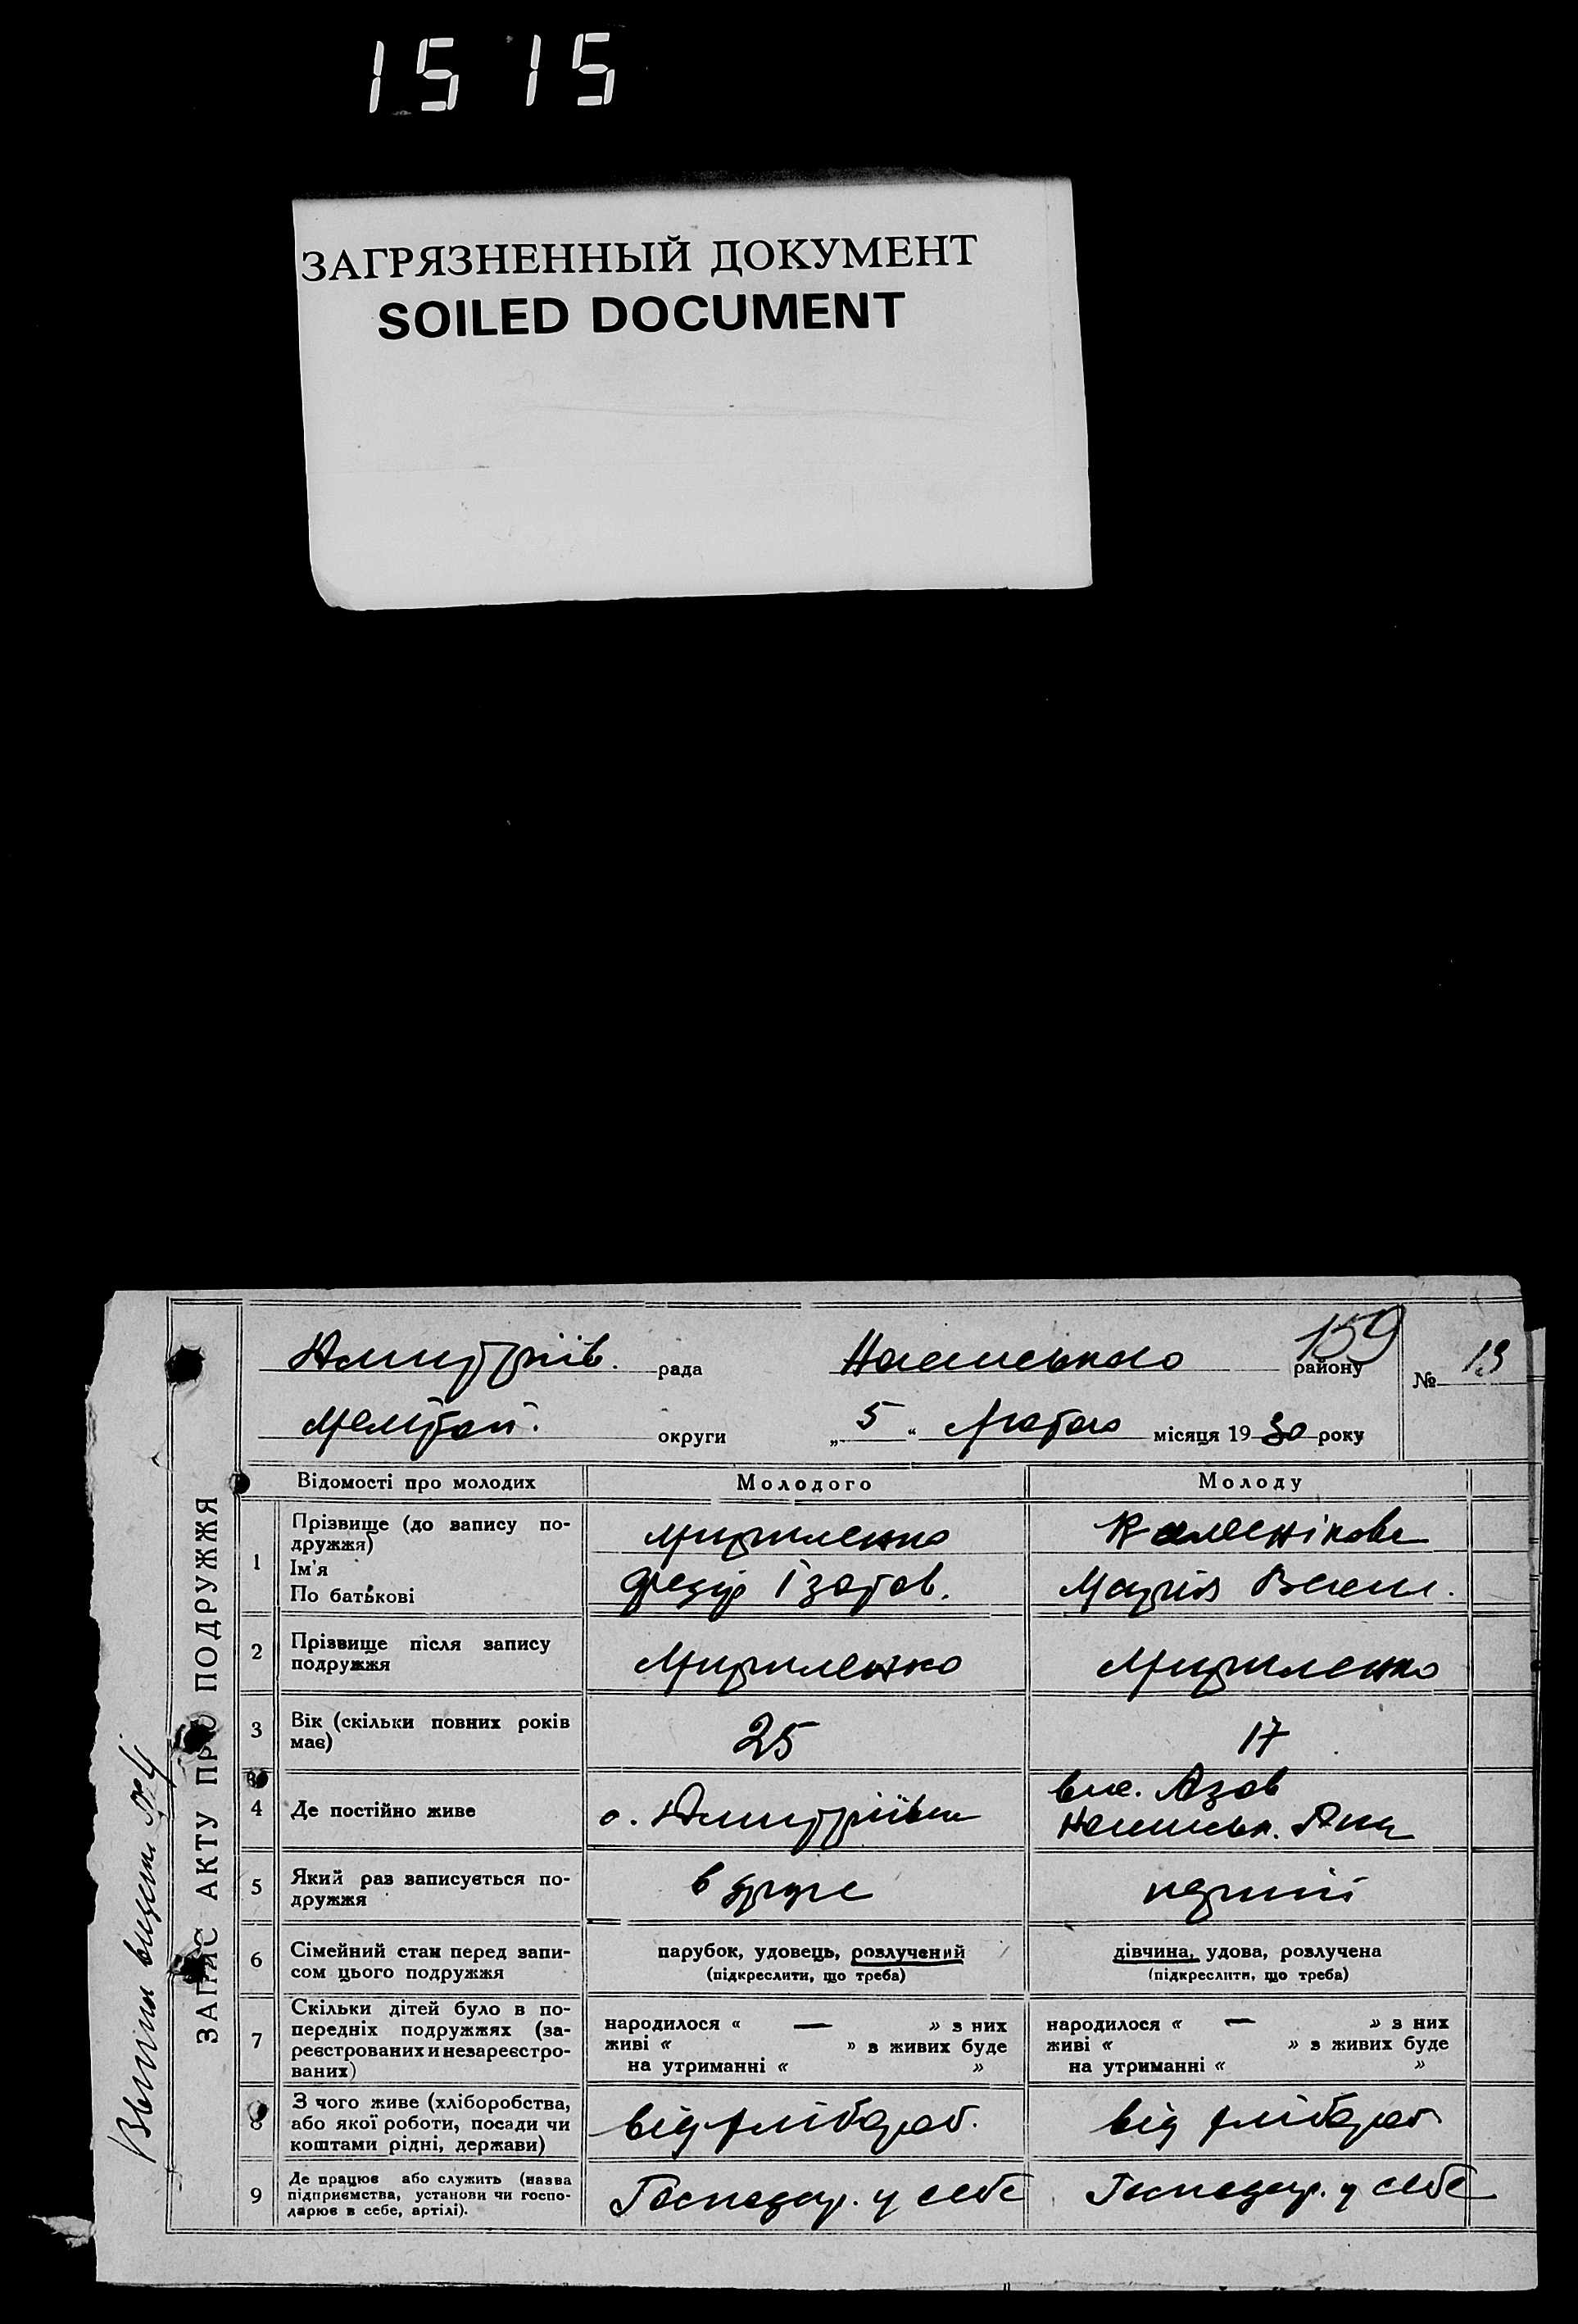 1515
ЗАГРЯЗНЕННЫЙ ДОКУМЕНТ
SOILED DOCUMENT
ЗАПИС АКТУ ПРО ПОДРУЖЖЯ
рада
району
159
№ 13
округи
„5“ Лютого місяця 1930 року
Відомості про молодих
Молодого
Молоду
1
Прізвище (до запису по-
дружжя)
Ім'я
По батькові
Мириленко
Федір
Каленікова
Марія Васил.
2
Прізвище після запису
подружжя
Мириленко
Мириленко
3
Вік (скільки повних років
має)
25
17
4
Де постійно живе
с. Дмитрівка
вис. Азов
5
Який раз записується по-
дружжя
в друге
перший
6
Сімейний стан перед запи-
сом цього подружжя
парубок, удовець, розлучений
(підкреслити, що треба)
дівчина, удова, розлучена
(підкреслити, що треба)
7
Скільки дітей було в по-
передніх подружжях (за-
реєстрованих и незареєстро-
ваних)
народилося « — » з них
живі « » з живих буде
на утриманні « »
народилося « — » з них
живі « » з живих буде
на утриманні « »
8
З чого живе (хліборобства,
або якої роботи, посади чи
коштами рідні, держави)
від хлібороб.
від хлібороб
9
Де працює або служить (назва
підприємства, установи чи госпо-
дарює в себе, артілі).
Господар. у себе
Господар. у себе